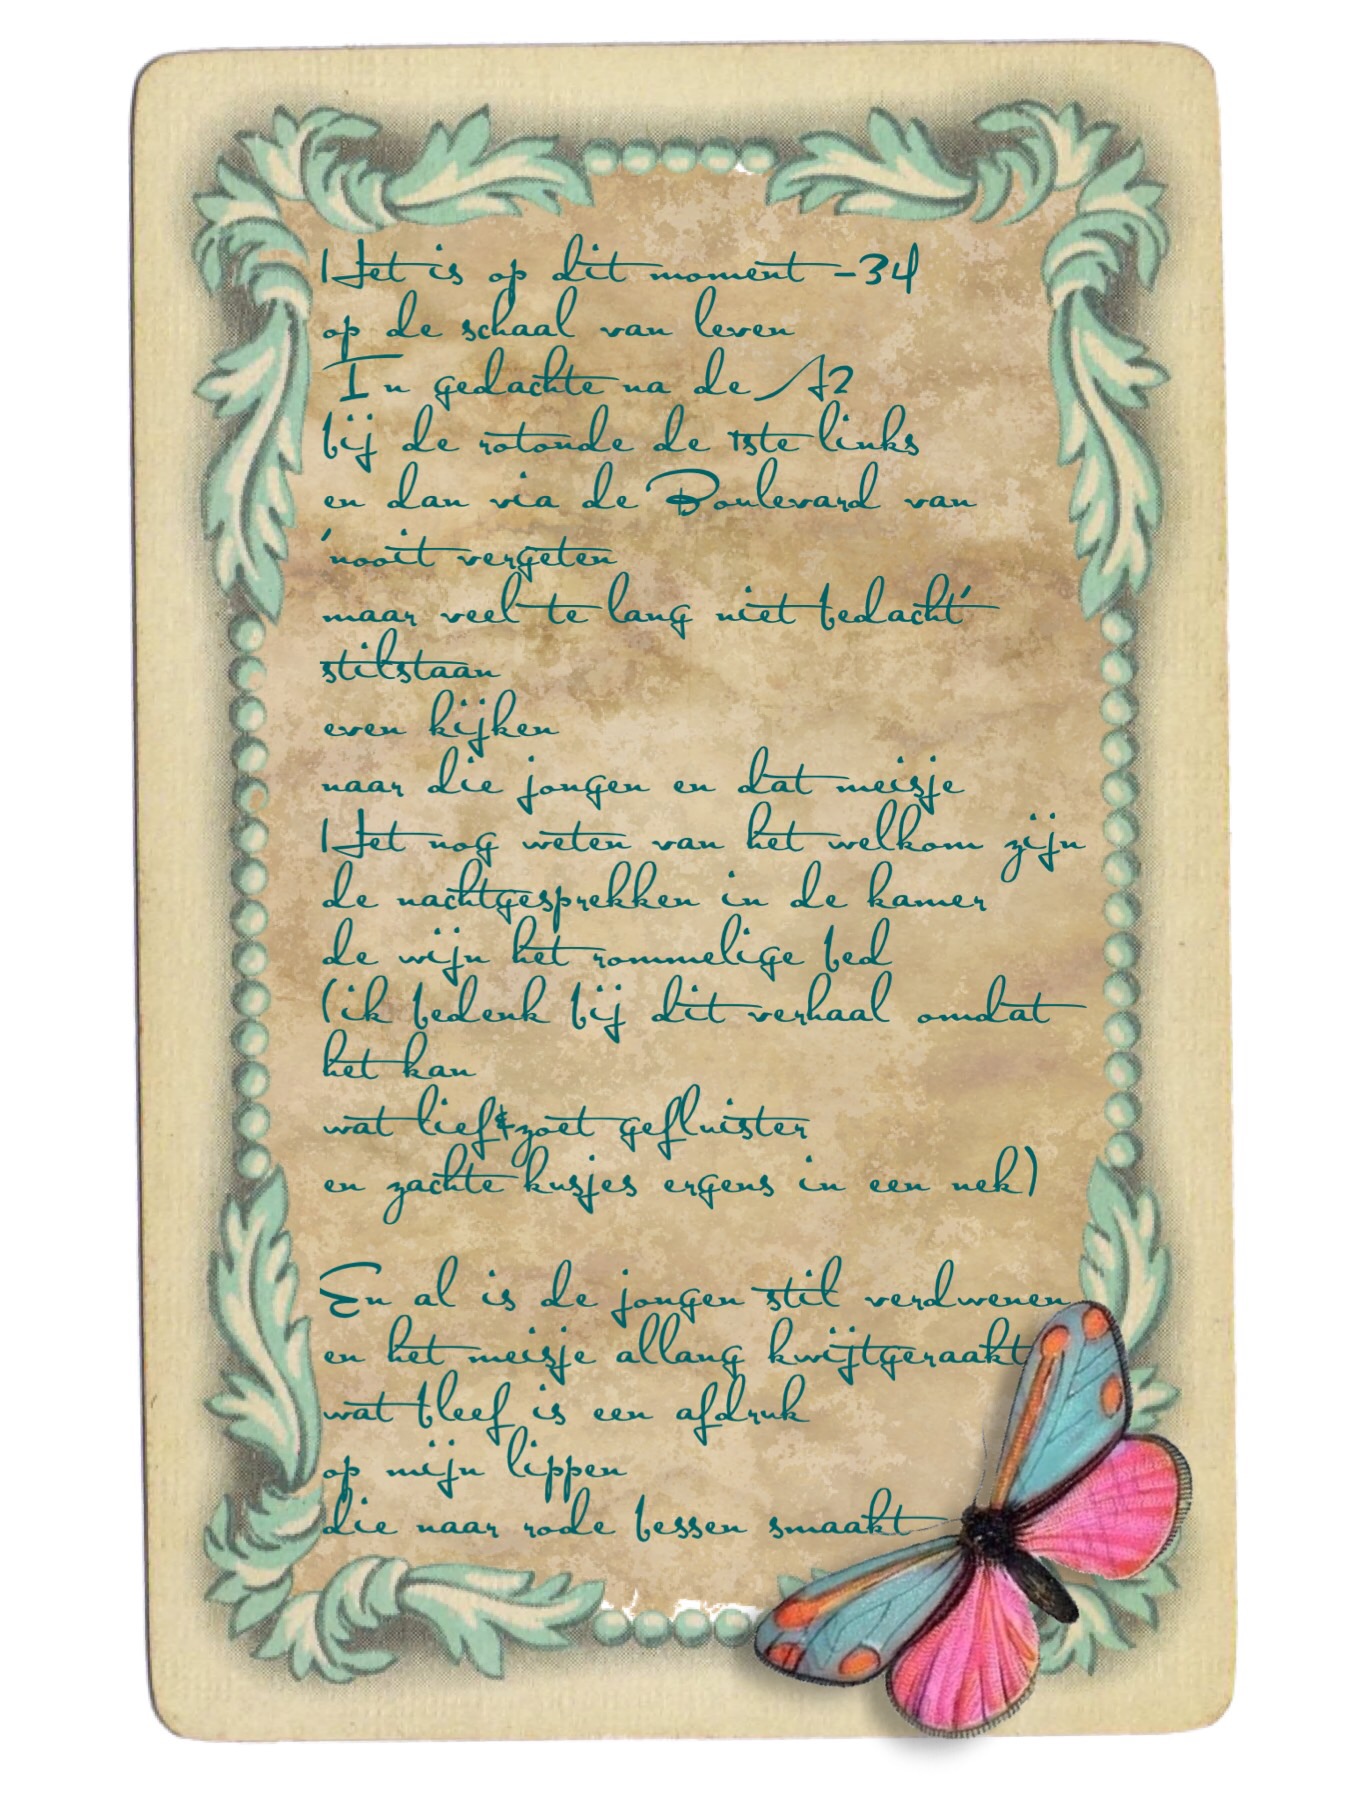 Het is op dit moment -34
op de schaal van leven
In gedachte na de A2
bij de rotonde de 1ste links
en dan via de Boulevard van
'nooit vergeten
maar veel te lang niet bedacht'
stilstaan
even kijken
naar die jongen en dat meisje
Het nog weten van het welkom zijn
de nachtgesprekken in de kamer
de wijn het rommelige bed
(ik bedenk bij dit verhaal omdat
het kan
wat lief&zoet gefluister
en zachte kusjes ergens in een nek)
En al is de jongen stil verdwenen
en het meisje allang kwijtgeraakt
wat bleef is een afdruk
op mijn lippen
die naar rode bessen smaakt